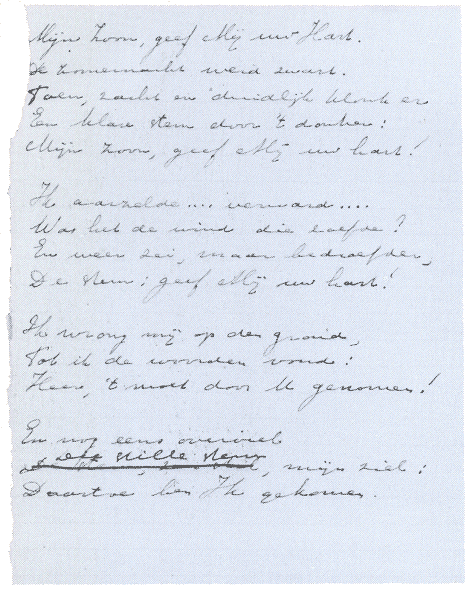 Mijn Zoon, geef Mij uw Hart.
De zomernacht werd zwart.
Toen, zacht en duidlijk klonk er
Een klare stem door 't donker:
Mijn Zoon, geef Mij uw hart!
Ik aarzelde .... verward ....
Was het de wind die
En weer zei, maar bedroefder,
De stem: geef Mij uw hart!
Ik wrong mij op den grond,
Tot ik de woorden vond:
Heer, 't moet door U genomen!
En nog eens overviel
stille stem, mijn ziel:
Daartoe ben Ik gekomen.